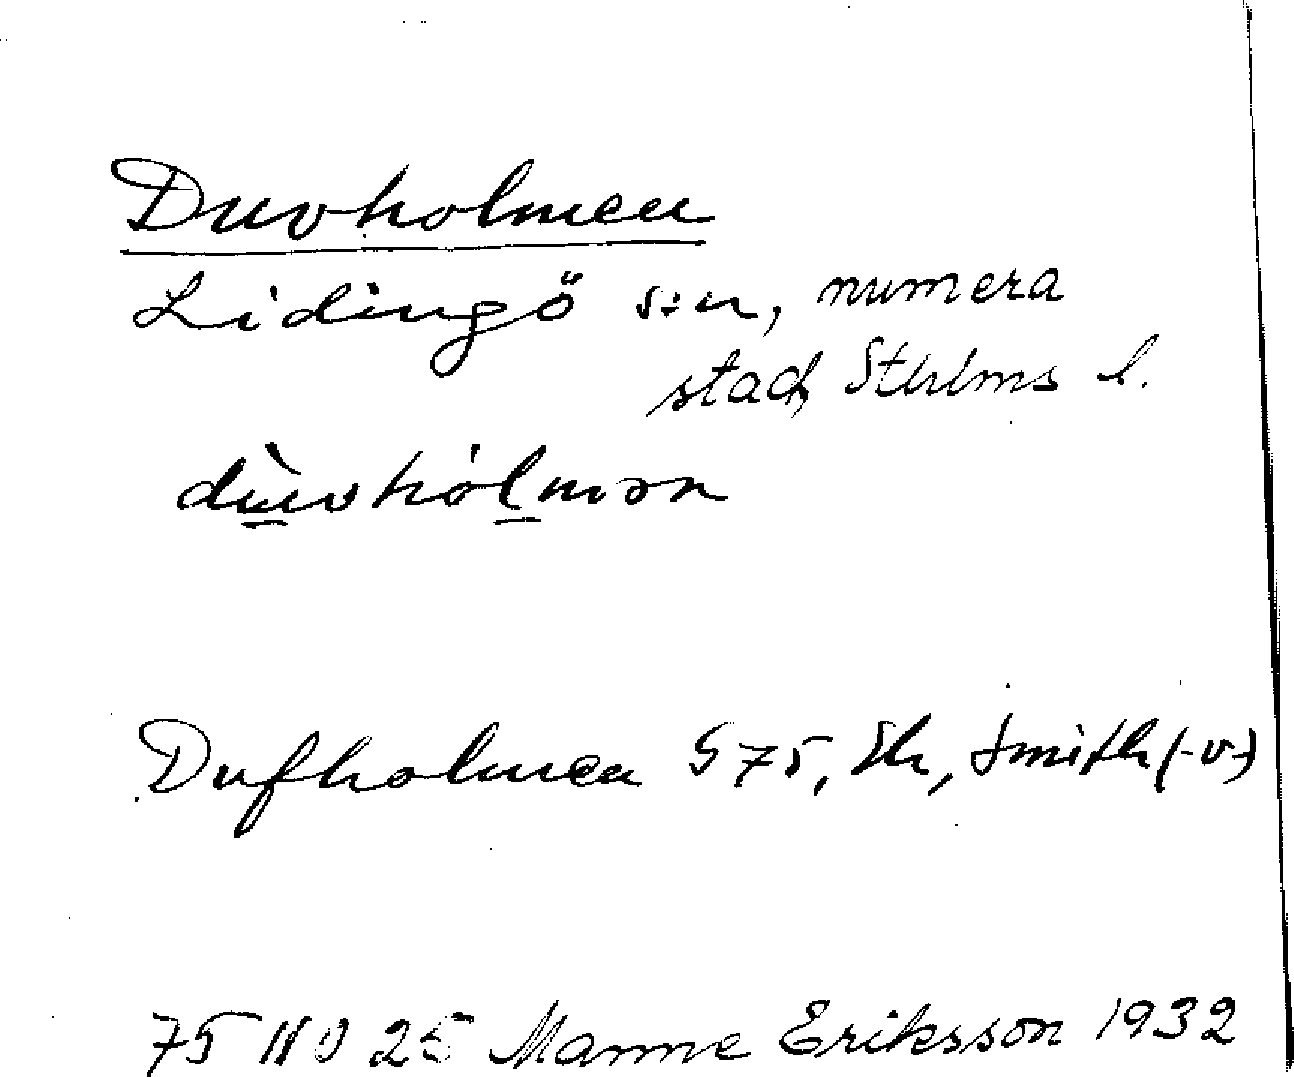 Duvholmen
Lidingö s:n, numera
stad, Sthlms l.
dùvhólmən
Dufholmen S 75, Sk, Smith (-v-)
75 NO 25 Manne Eriksson 1932